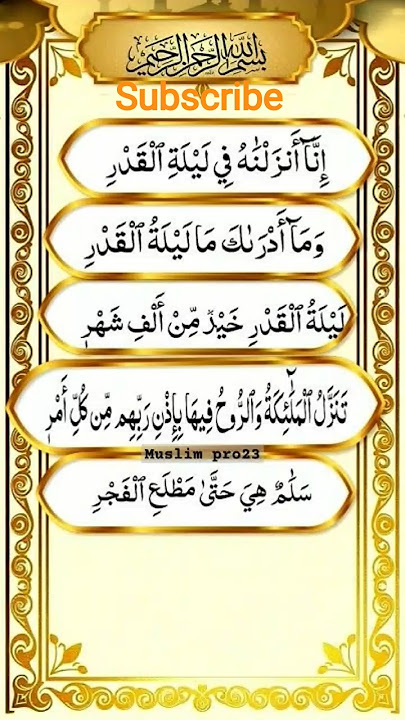 بسم الله الرحمن الرحيم
Subscribe
إِنَّآ أَنزَلْنَٰهُ فِي لَيْلَةِ ٱلْقَدْرِ
وَمَآ أَدْرَىٰكَ مَا لَيْلَةُ ٱلْقَدْرِ
لَيْلَةُ ٱلْقَدْرِ خَيْرٌ مِّنْ أَلْفِ شَهْرٍ
تَنَزَّلُ ٱلْمَلَٰٓئِكَةُ وَٱلرُّوحُ فِيهَا بِإِذْنِ رَبِّهِم مِّن كُلِّ أَمْرٍ
Muslim pro23
سَلَٰمٌ هِيَ حَتَّىٰ مَطْلَعِ ٱلْفَجْرِ